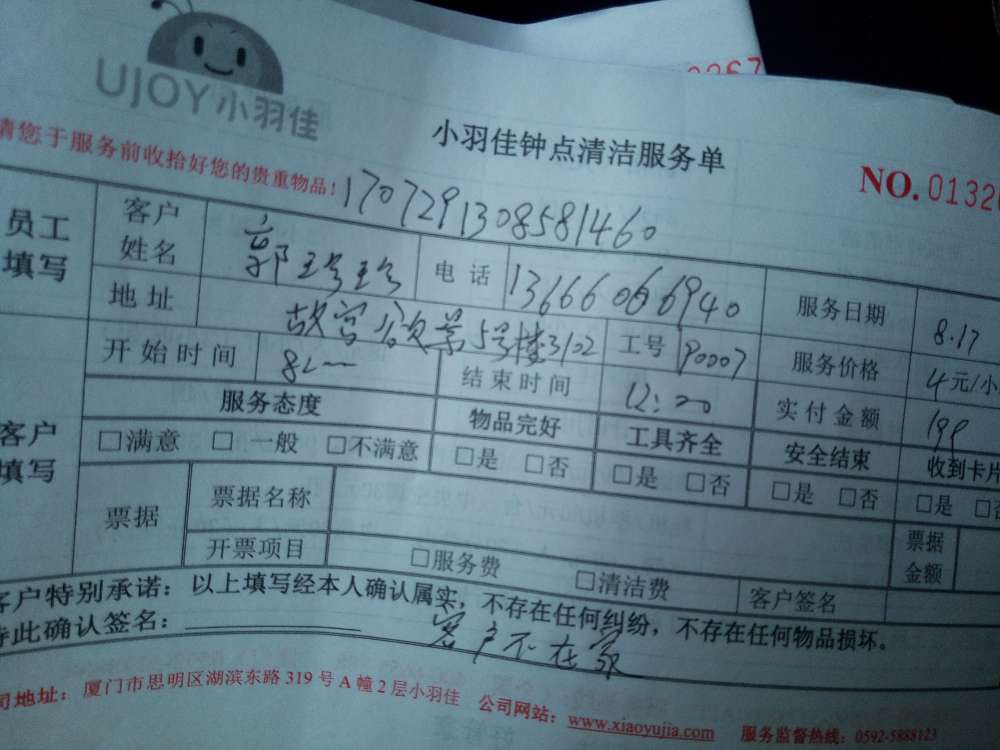 UJOY小羽佳
小羽佳钟点清洁服务单
请您于服务前收拾好您的贵重物品!
NO.0132
170729130858146​0
员工填写
客户姓名 郭 电话 13666066940 服务日期 8.17
地址 故宫 景5号楼3102 工号 90007 服务价格 4元/小
客户填写
开始时间 结束时间 12:00 实付金额 199
服务态度 物品完好 工具齐全 安全结束 收到卡片
□满意 □一般 □不满意 □是 □否 □是 □否 □是 □否 □是 □否
票据 票据名称 票据金额
开票项目 □服务费 □清洁费 客户签名
客户特别承诺：以上填写经本人确认属实，不存在任何纠纷，不存在任何物品损坏。
特此确认签名： 客户不在家
司地址：厦门市思明区湖滨东路319号A幢2层小羽佳 公司网站：www.xiaoyujia.com 服务监督热线：0592-5888123